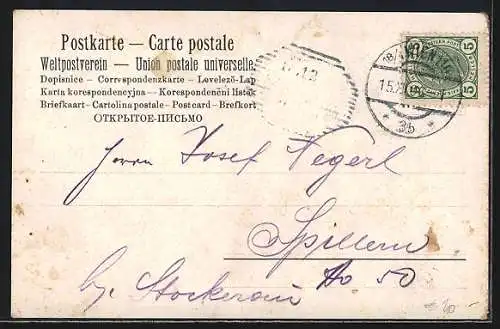 Postkarte — Carte postale
Weltpostverein — Union postale universelle.
Dopisnice — Correspondenzkarte — Levelező-Lap
Karta korespondencyjna — Korespondenční lístek
Briefkaart — Cartolina postale — Postcard — Brefkort
ОТКРЫТОЕ-ПИСЬМО
5 5
5 5
3b
Herrn Josef Negerl
Spillern
No 50
by. Stockerau